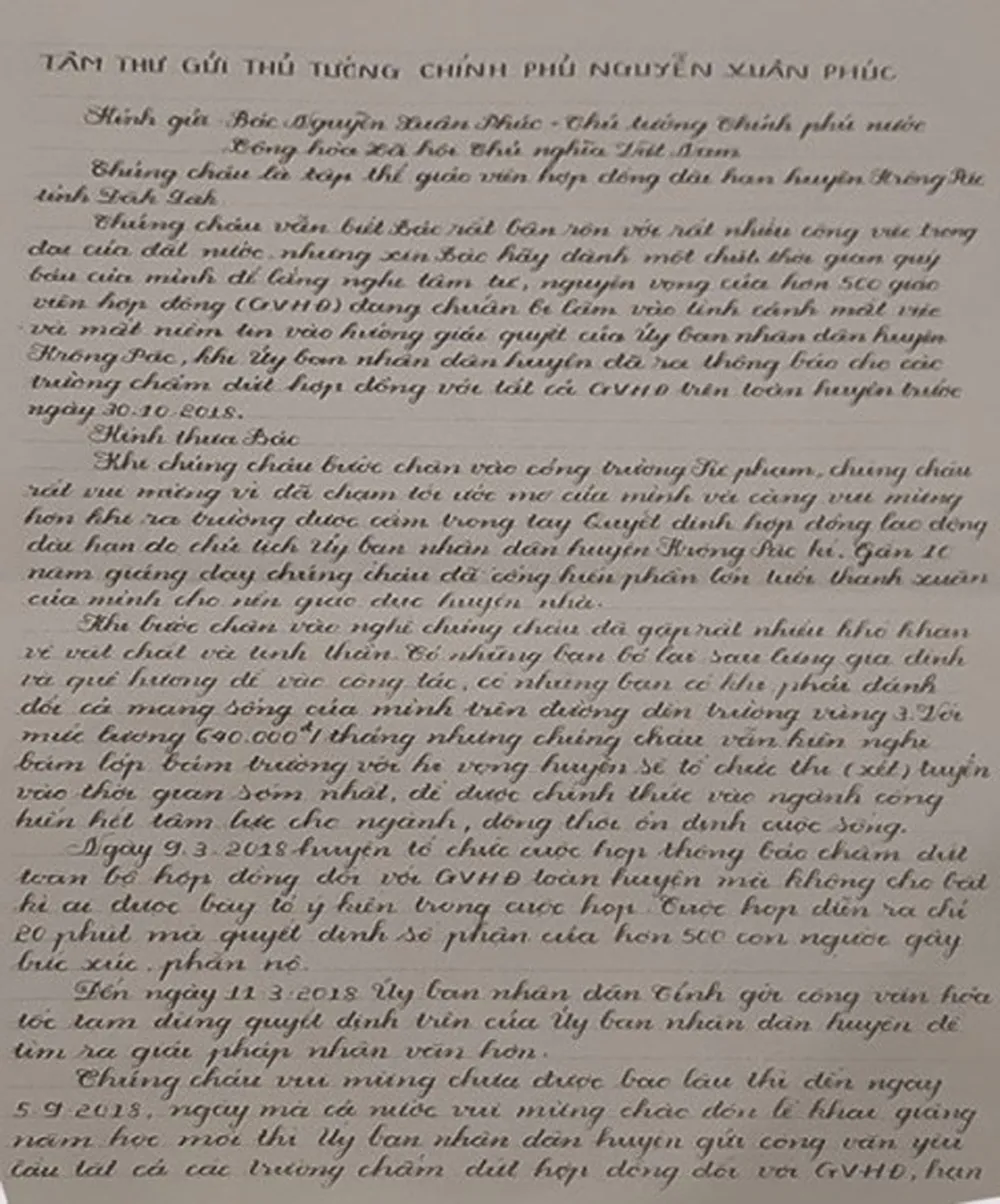 TÂM THƯ GỬI THỦ TƯỚNG CHÍNH PHỦ NGUYỄN XUÂN PHÚC
Kính gửi: Bác Nguyễn Xuân Phúc - Thủ tướng Chính phủ nước
Cộng hòa Xã hội Chủ nghĩa Việt Nam
Chúng cháu là tập thể giáo viên hợp đồng dài hạn huyện Krông Pắc
tỉnh Đăk Lăk
Chúng cháu vẫn biết Bác rất bận rộn với rất nhiều công việc trọng
đại của đất nước, nhưng xin Bác hãy dành một chút thời gian quý
báu của mình để lắng nghe tâm tư, nguyện vọng của hơn 500 giáo
viên hợp đồng (GVHĐ) đang chuẩn bị lâm vào tình cảnh mất việc
và mất niềm tin vào hướng giải quyết của Ủy ban nhân dân huyện
Krông Pắc, khi Ủy ban nhân dân huyện đã ra thông báo cho các
trường chấm dứt hợp đồng với tất cả GVHĐ trên toàn huyện trước
ngày 30.10.2018.
Kính thưa Bác
Khi chúng cháu bước chân vào cổng trường Sư phạm, chúng cháu
rất vui mừng vì đã chạm tới ước mơ của mình và càng vui mừng
hơn khi ra trường được cầm trong tay Quyết định hợp đồng lao động
dài hạn do chủ tịch Ủy ban nhân dân huyện Krông Pắc kí. Gần 10
năm giảng dạy chúng cháu đã cống hiến phần lớn tuổi thanh xuân
của mình cho nền giáo dục huyện nhà.
Khi bước chân vào nghề chúng cháu đã gặp rất nhiều khó khăn
về vật chất và tinh thần. Có những bạn bỏ lại sau lưng gia đình
và quê hương để vào công tác, có những bạn có khi phải đánh
đổi cả mạng sống của mình trên đường đến trường vùng 3. Với
mức lương 640.000đ/tháng nhưng chúng cháu vẫn kiên nghị
bám lớp bám trường với hi vọng huyện sẽ tổ chức thi (xét) tuyển
vào thời gian sớm nhất, để được chính thức vào ngành cống
hiến hết tâm lực cho ngành, đồng thời ổn định cuộc sống.
Ngày 9.3.2018 huyện tổ chức cuộc họp thông báo chấm dứt
toàn bộ hợp đồng đối với GVHĐ toàn huyện mà không cho bất
kì ai được bày tỏ ý kiến trong cuộc họp. Cuộc họp diễn ra chỉ
20 phút mà quyết định số phận của hơn 500 con người gây
bức xúc, phẫn nộ.
Đến ngày 11.3.2018 Ủy ban nhân dân Tỉnh gởi công văn hỏa
tốc tạm dừng quyết định trên của Ủy ban nhân dân huyện để
tìm ra giải pháp nhân văn hơn.
Chúng cháu vui mừng chưa được bao lâu thì đến ngày
5.9.2018, ngày mà cả nước vui mừng chào đón lễ khai giảng
năm học mới thì Ủy ban nhân dân huyện gửi công văn yêu
cầu tất cả các trường chấm dứt hợp đồng đối với GVHĐ, hạn